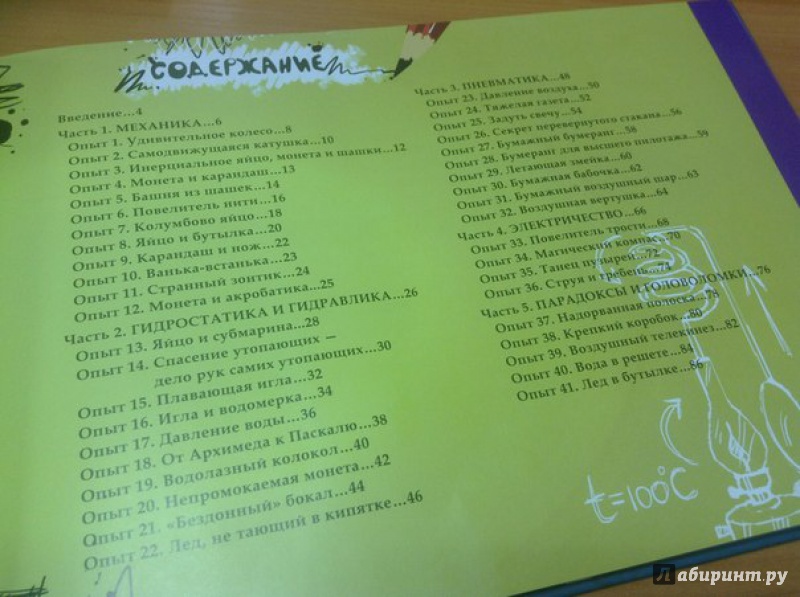 СОДЕРЖАНИЕ
Введение...4
Часть 1. МЕХАНИКА...6
Опыт 1. Удивительное колесо...8
Опыт 2. Самодвижущаяся катушка...10
Опыт 3. Инерциальное яйцо, монета и шашки...12
Опыт 4. Монета и карандаш...13
Опыт 5. Башня из шашек...14
Опыт 6. Повелитель нити...16
Опыт 7. Колумбово яйцо...18
Опыт 8. Яйцо и бутылка...20
Опыт 9. Карандаш и нож...22
Опыт 10. Ванька-встанька...23
Опыт 11. Странный зонтик...24
Опыт 12. Монета и акробатика...25
Часть 2. ГИДРОСТАТИКА И ГИДРАВЛИКА...26
Опыт 13. Яйцо и субмарина...28
Опыт 14. Спасение утопающих —
дело рук самих утопающих...30
Опыт 15. Плавающая игла...32
Опыт 16. Игла и водомерка...34
Опыт 17. Давление воды...36
Опыт 18. От Архимеда к Паскалю...38
Опыт 19. Водолазный колокол...40
Опыт 20. Непромокаемая монета...42
Опыт 21. «Бездонный» бокал...44
Опыт 22. Лед, не тающий в кипятке...46
Часть 3. ПНЕВМАТИКА...48
Опыт 23. Давление воздуха...50
Опыт 24. Тяжелая газета...52
Опыт 25. Задуть свечу...54
Опыт 26. Секрет перевернутого стакана...56
Опыт 27. Бумажный бумеранг...58
Опыт 28. Бумеранг для высшего пилотажа...59
Опыт 29. Летающая змейка...60
Опыт 30. Бумажная бабочка...62
Опыт 31. Бумажный воздушный шар...63
Опыт 32. Воздушная вертушка...64
Часть 4. ЭЛЕКТРИЧЕСТВО...66
Опыт 33. Повелитель трости...68
Опыт 34. Магический компас...70
Опыт 35. Танец пузырей...72
Опыт 36. Струя и гребень...74
Часть 5. ПАРАДОКСЫ И ГОЛОВОЛОМКИ...76
Опыт 37. Надорванная полоска...78
Опыт 38. Крепкий коробок...80
Опыт 39. Воздушный телекинез...82
Опыт 40. Вода в решете...84
Опыт 41. Лед в бутылке...86
t=100°C
Лабиринт.ру